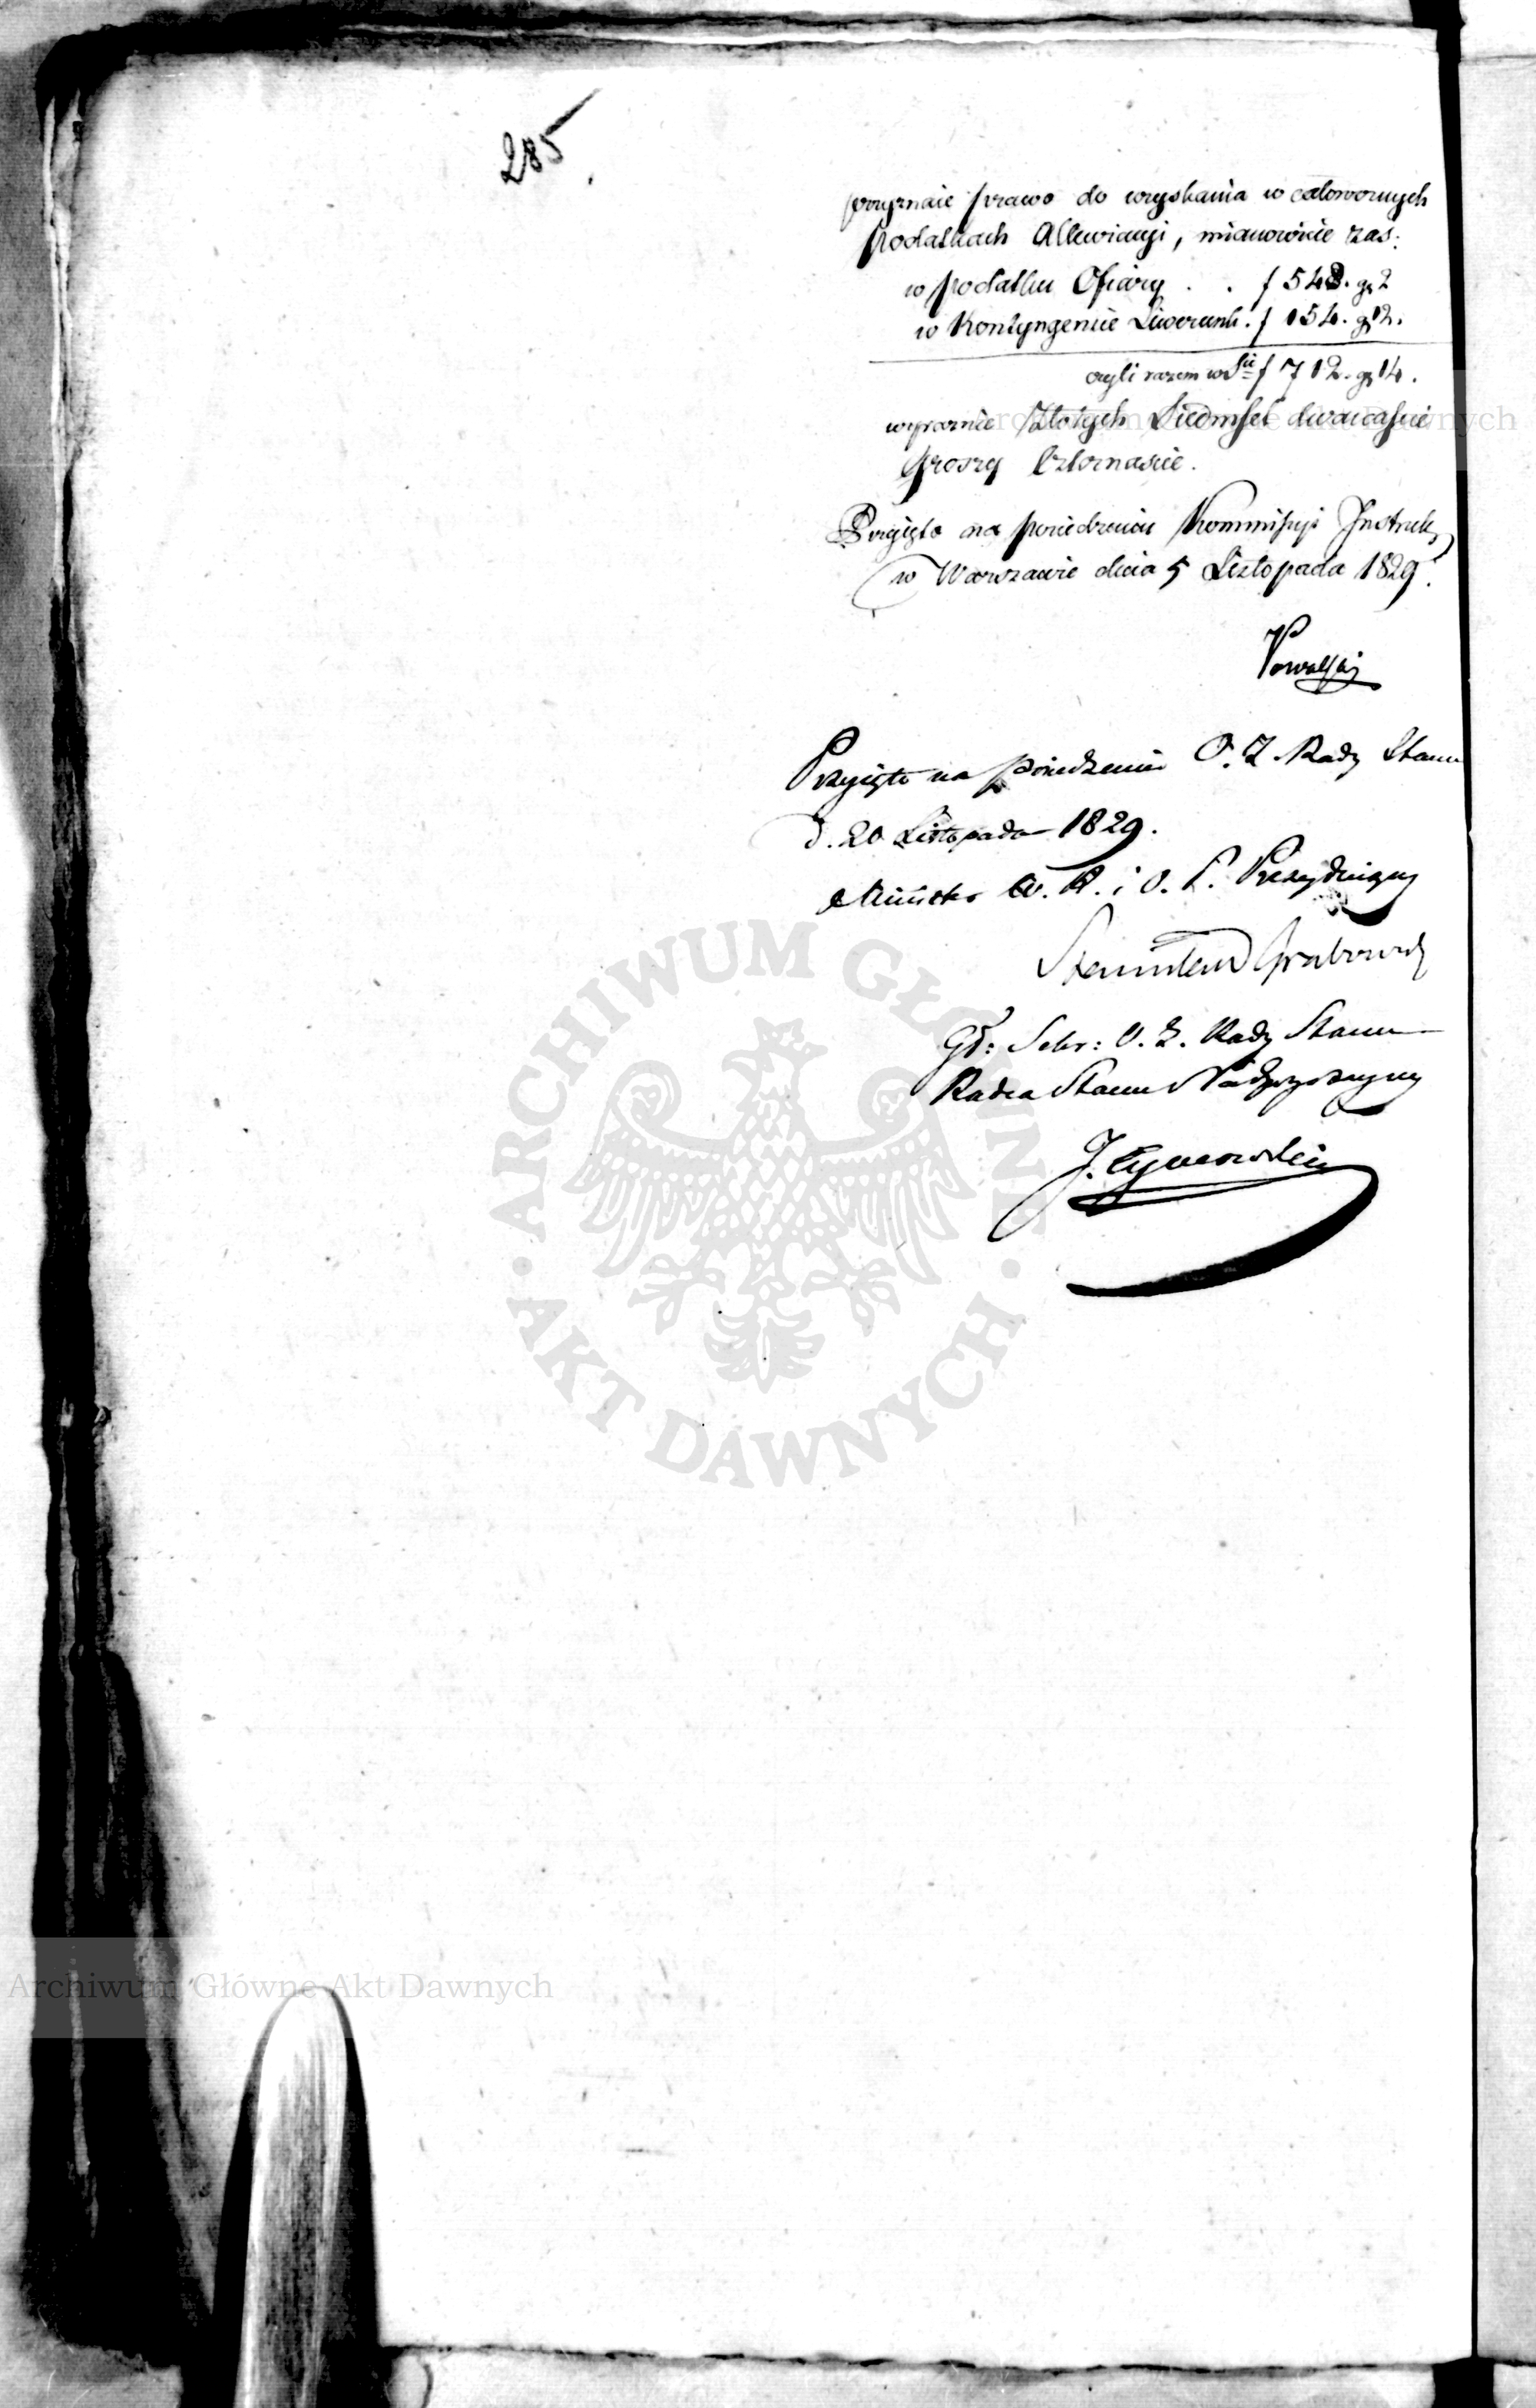 285.
przyznaie prawo do uzyskania w całorocznych
podatkach Allewiacyi, mianowicie zaś:
w podatku Ofiary . . f 548. gr 2
w Kontyngencie Liwerunk. f 154. gr 12.
czyli razem w Sie f 712. gr 14.
wyraznie Złotych Siedmset dwanaście
groszy Czternaście.
Przyięto na posiedzeniu Kommissyi Instruk.
w Warszawie dnia 5 Listopada 1829.
Przyięte na posiedzeniu O. Z. Rady Stanu
d. 20 Listopada 1829.
Minister W. R. i O. P. Prezyduiący
Stanisław Grabowski
Gł: Sekr: O. Z. Rady Stanu
Radca Stanu Nadzwyczayny
J. Tymowski
ARCHIWUM GŁÓWNE
AKT DAWNYCH
Archiwum Główne Akt Dawnych